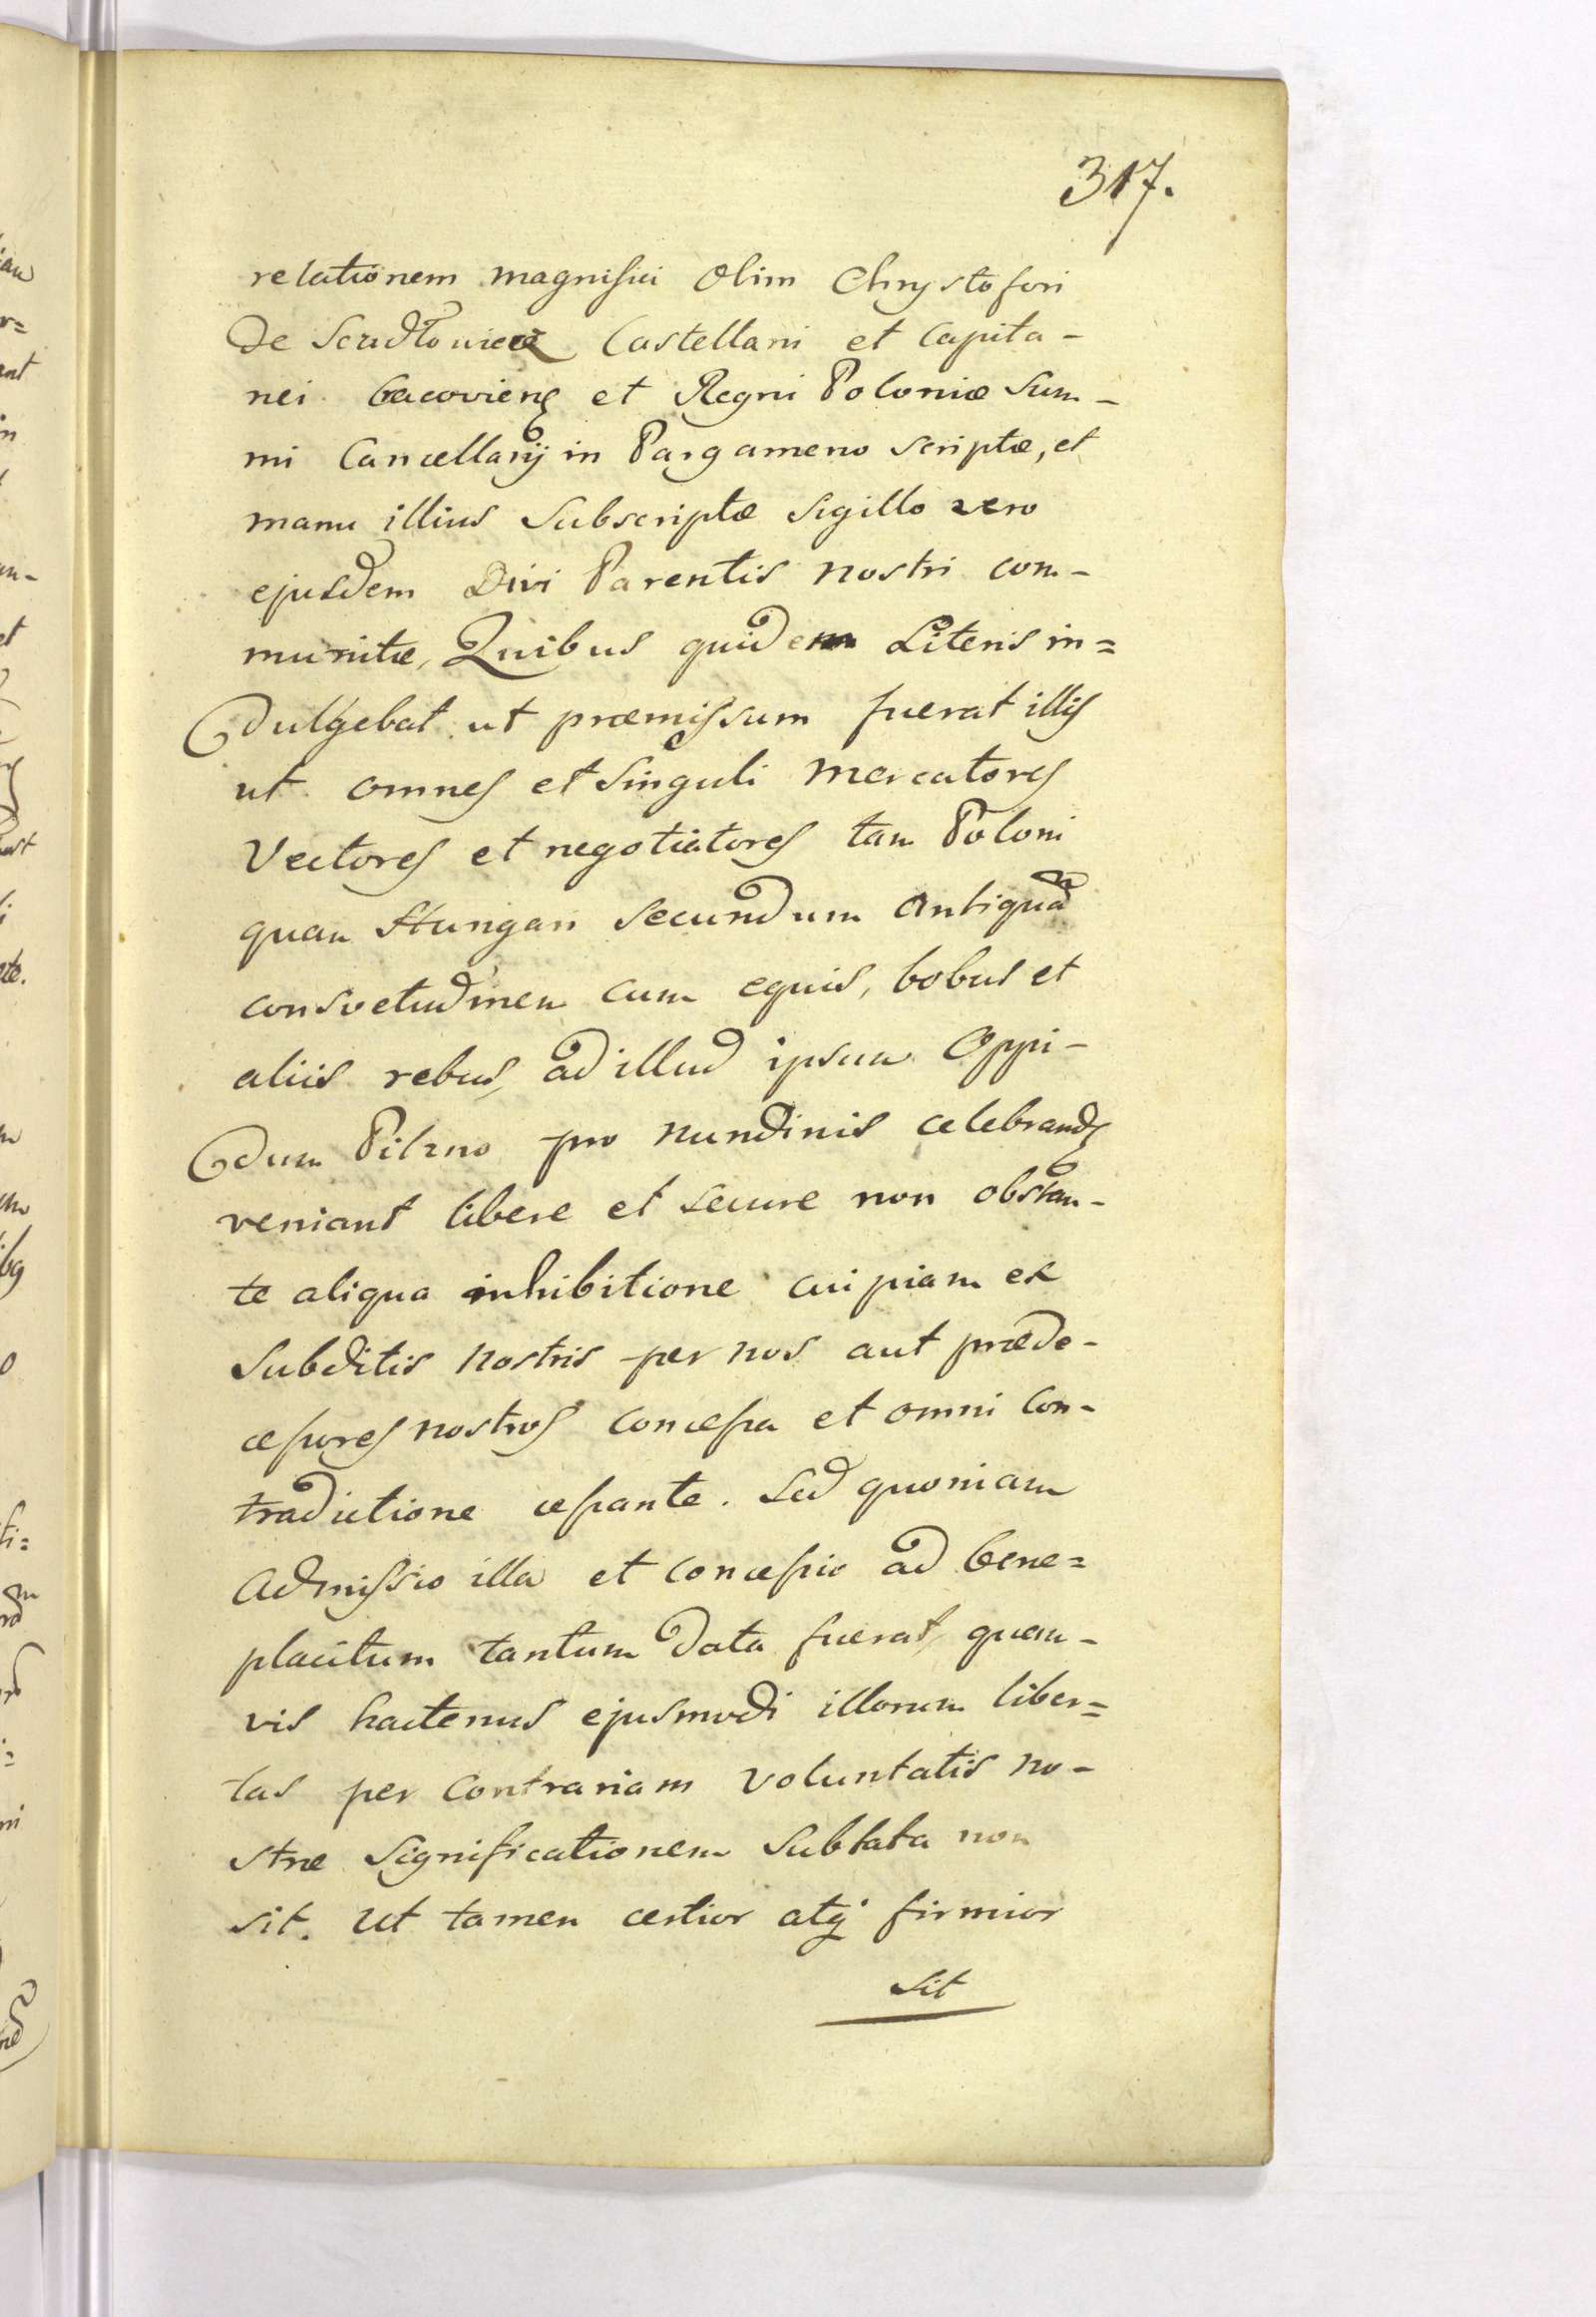 317.
relationem magnifici olim Chrystofori
De Scudłowiecz Castellani et Capita-
nei Cracovieng et Regni Poloniæ Sum-
mi Cancellarij in Pargameno scriptæ, et
manu illius Subscriptæ Sigillo vero
ejusdem Divi Parentis nostri com-
munitæ, Quibus quidem Literis in=
dulgebat ut præmissum fuerat illis
ut omnes et Singuli Mercatores
Vectores et negotiatores tam Poloni
quam Hungari Secundum Antiquã
consvetudinem cum equis, bobus et
aliis rebus, ad illud ipsum Oppi-
dum Pilzno pro nundinis celebrands
veniant libere et secure non obstan-
te aliqua inhibitione cuipiam ex
Subditis Nostris per nos aut præde-
cessores nostros concessa et omni Con-
tradictione cessante. Sed quoniam
Admissio illa et concessio ad bene=
placitum tantum data fuerat, quam-
vis hactenus ejusmodi illorum liber=
tas per Contrariam voluntatis no-
stræ Significationem Sublata non
sit. Ut tamen certior atq firmior
Sit